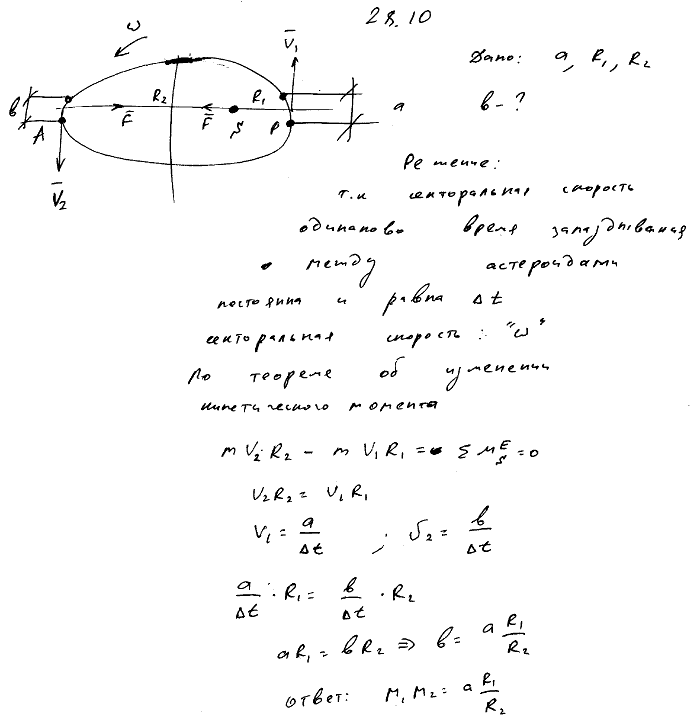 28.10
ω
V̄₁
Дано: a, R₁, R₂
в
R₂
R₁
a
в - ?
A
F̄
F̄
S
P
V̄₂
Решение:
т.к секторальная скорость
одинаково время запаздывания
между астероидами
постоянна и равна Δt
секторальная скорость: "ω"
По теореме об изменении
кинетического момента
mV₂R₂ - mV₁R₁ = ΣM_S^E = 0
V₂R₂ = V₁R₁
V₁ = a/Δt ; V₂ = в/Δt
a/Δt · R₁ = в/Δt · R₂
aR₁ = вR₂ ⇒ в = a R₁/R₂
ответ: M₁M₂ = a R₁/R₂